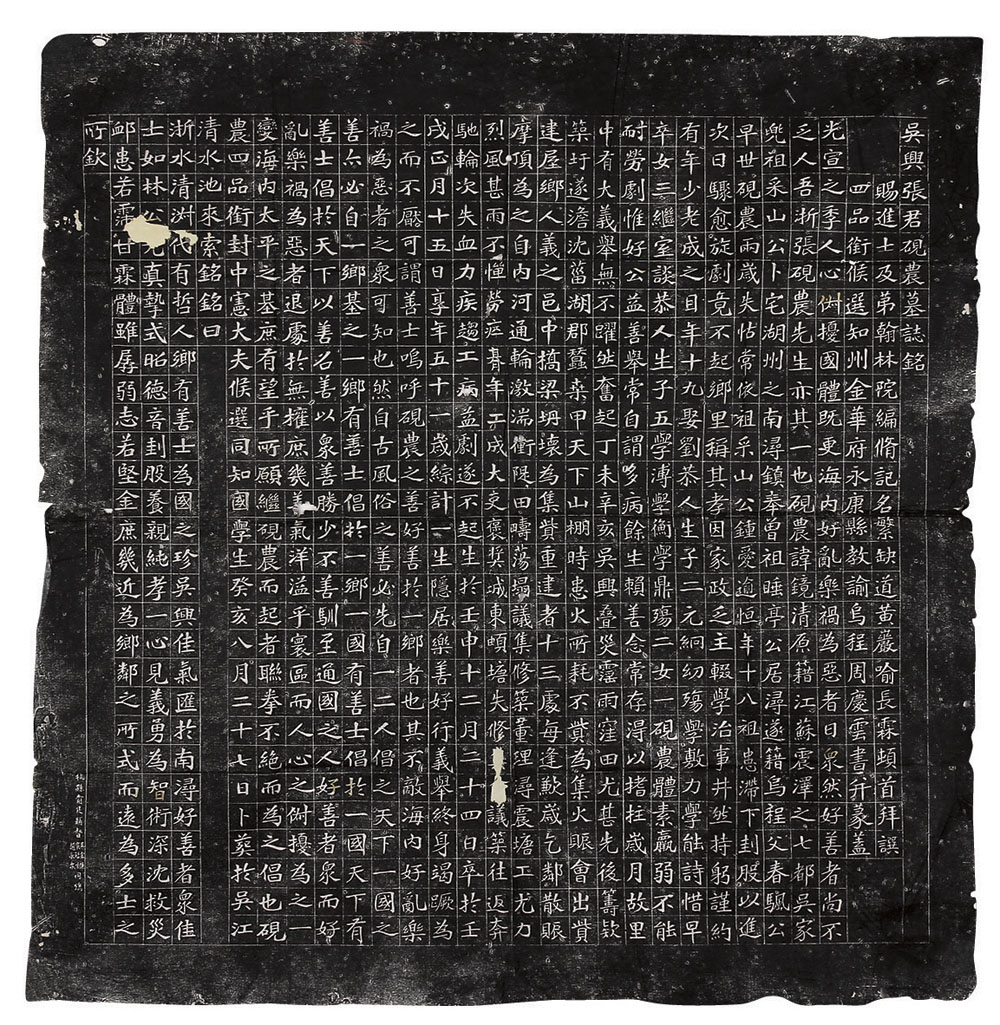 吳興張君硯農墓誌銘
賜進士及第翰林院編脩記名繁缺道黃巖喻長霖頓首拜譔
四品銜候選知州金華府永康縣教諭烏程周慶雲書并篆蓋
光宣之季人心俶擾國體既更海內好亂樂禍為惡者日眾然好善者尚不
乏人吾浙張硯農先生亦其一也硯農諱鏡清原籍江蘇震澤之七都吳家
兠祖采山公卜宅湖州之南潯鎮奉曾祖睡亭公居潯遂籍烏程父春颿公
早世硯農兩歲失怙常依祖采山公鍾愛逾恒年十八祖患滯下刲股以進
次日驟愈旋劇竟不起鄉里稱其孝因家政乏主輟學治事井然持躬謹約
有年少老成之目年十九娶劉恭人生子二元絅幼殤學敷力學能詩惜早
卒女三繼室談恭人生子五學溥學衡學鼎殤二女一硯農體素羸弱不能
耐勞劇惟好公益善舉常自謂多病餘生賴善念常存得以搘拄歲月故里
中有大義舉無不躍然奮起丁未辛亥吳興疊災霪雨窪田尤甚先後籌欵
築圩遂澹沈菑湖郡蠶桑甲天下山棚時患火所耗不貲為集火賑會出貲
建屋鄉人義之邑中橋梁坍壞為集貲重建者十三處每逢歉歲乞鄰散賑
摩頂為之自內河通輪激湍衝隄田疇蕩塌議集修築董理潯震塘工尤力
烈風甚雨不憚勞瘁朞年工成大吏褒奬城東頔塘失修議築往返奔
馳輪次失血力疾趨工病益劇遂不起生於壬申十二月二十四日卒於壬
戌正月十五日享年五十一歲綜計一生隱居樂善好行義舉終身竭蹶為
之而不厭可謂善士嗚呼硯農之善好善於一鄉者也其不敵海內好亂樂
禍為惡者之眾可知也然自古風俗之善必先自一二人倡之天下一國之
善亦必自一鄉基之一鄉有善士倡於一鄉一國有善士倡於一國天下有
善士倡於天下以善名善以眾善勝少不善馴至通國之人好善者眾而好
亂樂禍為惡者退處於無擁庶幾善氣洋溢乎寰區而人心之俶擾為之一
變海內太平之基庶有望乎所願繼硯農而起者聯奉不絕而為之倡也硯
農四品銜封中憲大夫候選同知國學生癸亥八月二十七日卜葬於吳江
清水池來索銘銘曰
浙水清淑代有哲人鄉有善士為國之珍吳興佳氣匯於南潯好善者眾佳
士如林公真摯式昭德音刲股養親純孝一心見義勇為智術深沈救災
卹患若霈甘霖體雖孱弱志若堅金庶幾近為鄉鄰之所式而遠為多士之
所欽